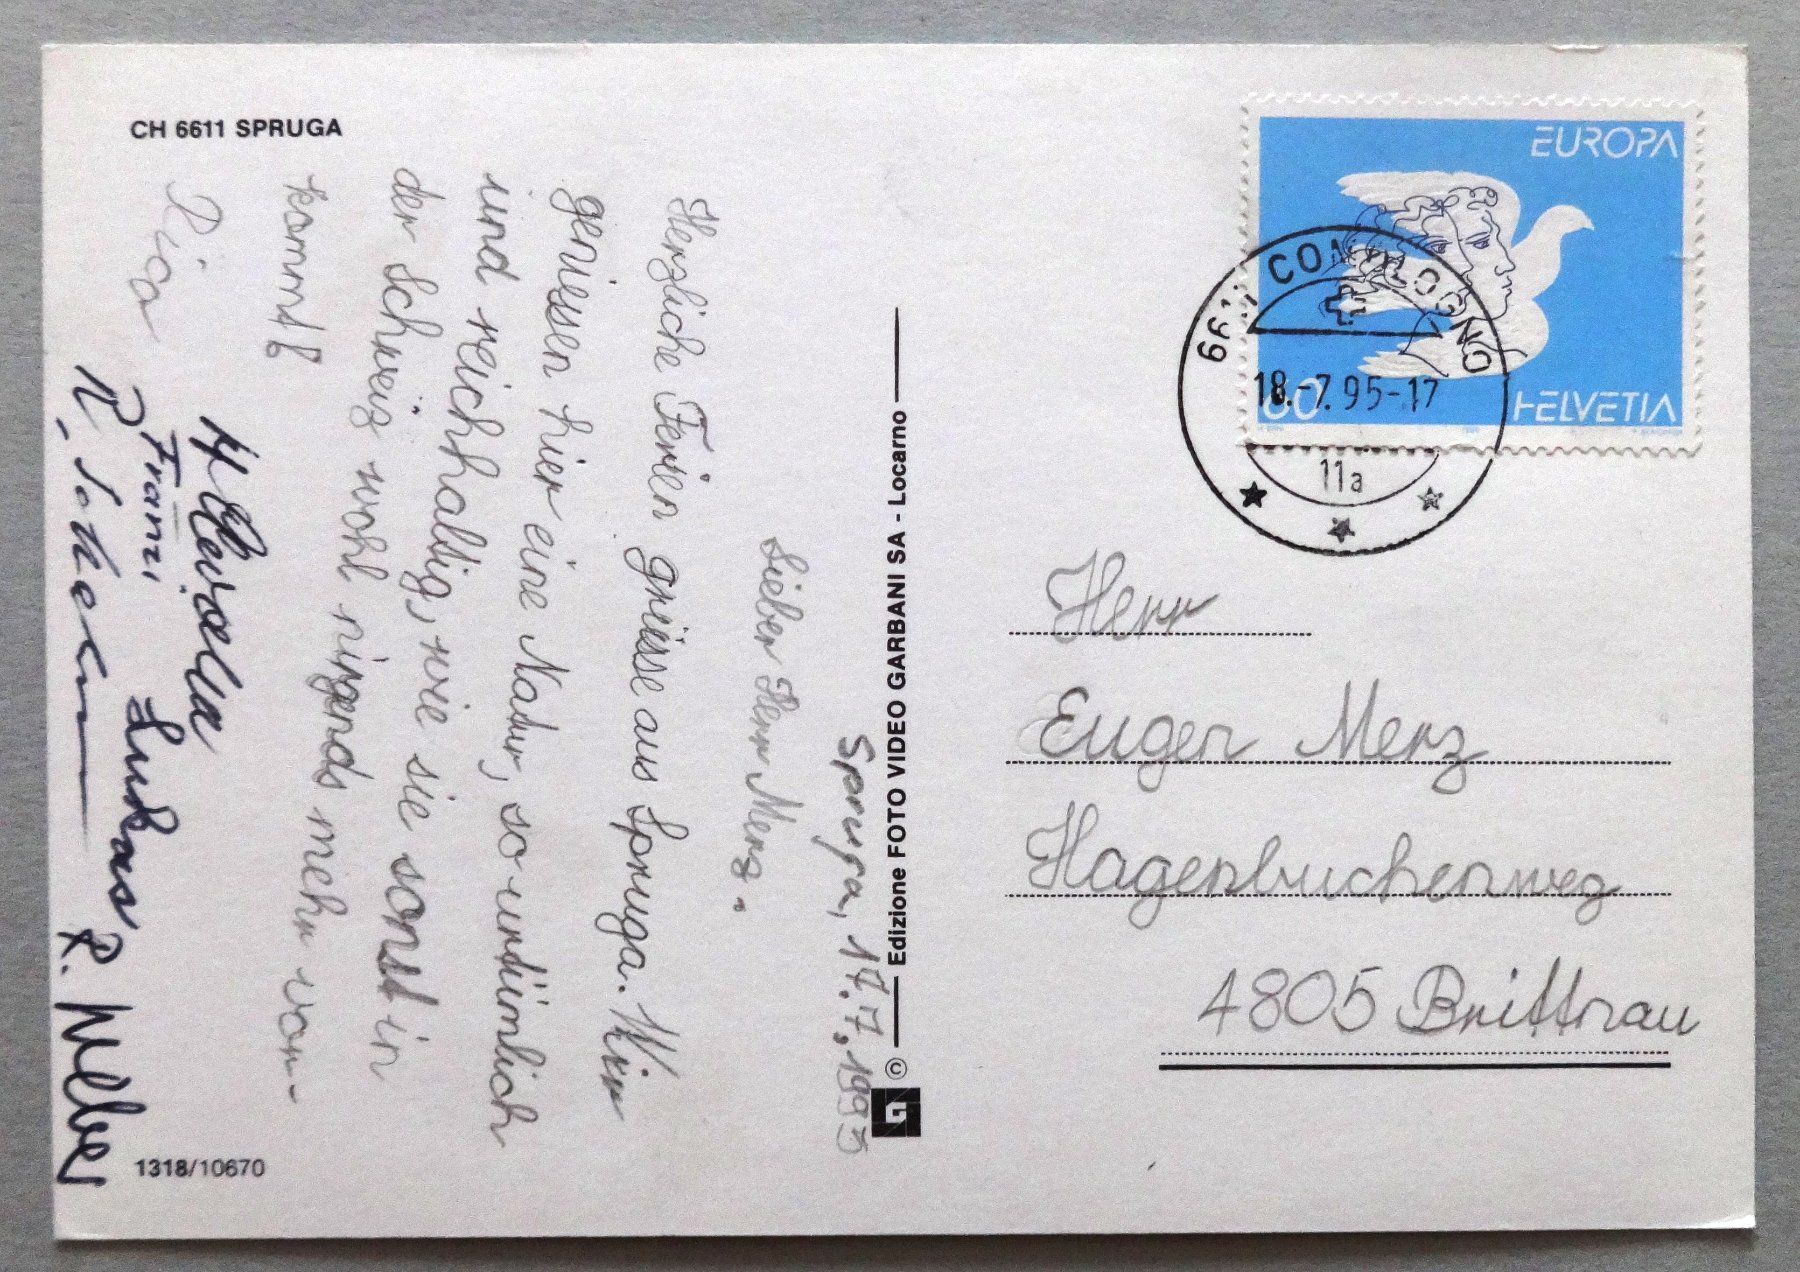 CH 6611 SPRUGA
Spruga, 17.7.1995
Lieber Herr Merz.
Herzliche Ferien grüsse aus Spruga. Wir
geniessen hier eine Natur, so urtümlich
und reichhaltig, wie sie sonst in
der Schweiz wohl nirgends mehr vor-
kommt
Franzi
Lukas
R. Weber
1318/10670
© Edizione FOTO VIDEO GARBANI SA - Locarno
EUROPA
60
HELVETIA
6611 COMOLOGNO
18.-7.95-17
11a
Herr
Eugen Merz
Hagenbuchenweg
4805 Brittnau